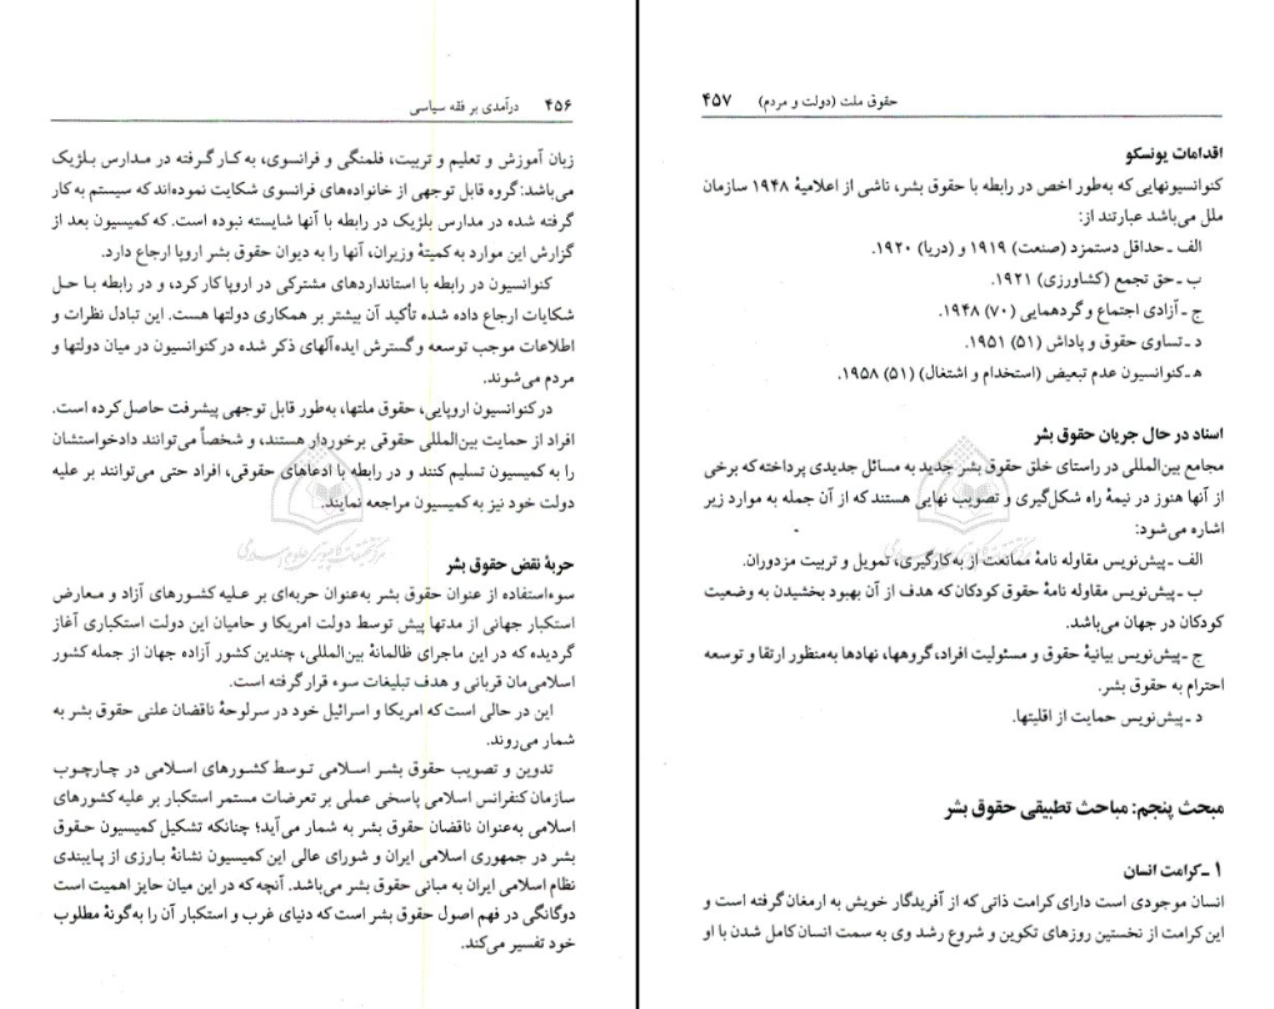 ۴۵۶ درآمدی بر فقه سیاسی
زبان آموزش و تعلیم و تربیت، فلمنگی و فرانسوی، به کار گرفته در مدارس بلژیک
می‌باشد: گروه قابل توجهی از خانواده‌های فرانسوی شکایت نموده‌اند که سیستم به کار
گرفته شده در مدارس بلژیک در رابطه با آنها شایسته نبوده است. که کمیسیون بعد از
گزارش این موارد به کمیتهٔ وزیران، آنها را به دیوان حقوق بشر اروپا ارجاع دارد.
کنوانسیون در رابطه با استانداردهای مشترکی در اروپا کار کرد، و در رابطه با حل
شکایات ارجاع داده شده تأکید آن بیشتر بر همکاری دولتها هست. این تبادل نظرات و
اطلاعات موجب توسعه و گسترش ایده‌آلهای ذکر شده در کنوانسیون در میان دولتها و
مردم می‌شوند.
در کنوانسیون اروپایی، حقوق ملتها، به‌طور قابل توجهی پیشرفت حاصل کرده است.
افراد از حمایت بین‌المللی حقوقی برخوردار هستند، و شخصاً می‌توانند دادخواستشان
را به کمیسیون تسلیم کنند و در رابطه با ادعاهای حقوقی، افراد حتی می‌توانند بر علیه
دولت خود نیز به کمیسیون مراجعه نمایند.
حربهٔ نقض حقوق بشر
سوءاستفاده از عنوان حقوق بشر به‌عنوان حربه‌ای بر علیه کشورهای آزاد و معارض
استکبار جهانی از مدتها پیش توسط دولت امریکا و حامیان این دولت استکباری آغاز
گردیده که در این ماجرای ظالمانهٔ بین‌المللی، چندین کشور آزاده جهان از جمله کشور
اسلامی‌مان قربانی و هدف تبلیغات سوء قرار گرفته است.
این در حالی است که امریکا و اسرائیل خود در سرلوحهٔ ناقضان علنی حقوق بشر به
شمار می‌روند.
تدوین و تصویب حقوق بشر اسلامی توسط کشورهای اسلامی در چارچوب
سازمان کنفرانس اسلامی پاسخی عملی بر تعرضات مستمر استکبار بر علیه کشورهای
اسلامی به‌عنوان ناقضان حقوق بشر به شمار می‌آید؛ چنانکه تشکیل کمیسیون حقوق
بشر در جمهوری اسلامی ایران و شورای عالی این کمیسیون نشانهٔ بارزی از پایبندی
نظام اسلامی ایران به مبانی حقوق بشر می‌باشد. آنچه که در این میان حایز اهمیت است
دوگانگی در فهم اصول حقوق بشر است که دنیای غرب و استکبار آن را به‌گونهٔ مطلوب
خود تفسیر می‌کند.
حقوق ملت (دولت و مردم) ۴۵۷
اقدامات یونسکو
کنوانسیونهایی که به‌طور اخص در رابطه با حقوق بشر، ناشی از اعلامیهٔ ۱۹۴۸ سازمان
ملل می‌باشد عبارتند از:
الف ـ حداقل دستمزد (صنعت) ۱۹۱۹ و (دریا) ۱۹۲۰.
ب ـ حق تجمع (کشاورزی) ۱۹۲۱.
ج ـ آزادی اجتماع و گردهمایی (۷۰) ۱۹۴۸.
د ـ تساوی حقوق و پاداش (۵۱) ۱۹۵۱.
ه ـ کنوانسیون عدم تبعیض (استخدام و اشتغال) (۵۱) ۱۹۵۸.
اسناد در حال جریان حقوق بشر
مجامع بین‌المللی در راستای خلق حقوق بشر جدید به مسائل جدیدی پرداخته که برخی
از آنها هنوز در نیمهٔ راه شکل‌گیری و تصویب نهایی هستند که از آن جمله به موارد زیر
اشاره می‌شود:
الف ـ پیش‌نویس مقاوله نامهٔ ممانعت از به‌کارگیری، تمویل و تربیت مزدوران.
ب ـ پیش‌نویس مقاوله نامهٔ حقوق کودکان که هدف از آن بهبود بخشیدن به وضعیت
کودکان در جهان می‌باشد.
ج ـ پیش‌نویس بیانیهٔ حقوق و مسئولیت افراد، گروهها، نهادها به‌منظور ارتقا و توسعه
احترام به حقوق بشر.
د ـ پیش‌نویس حمایت از اقلیتها.
مبحث پنجم: مباحث تطبیقی حقوق بشر
۱ ـ کرامت انسان
انسان موجودی است دارای کرامت ذاتی که از آفریدگار خویش به ارمغان گرفته است و
این کرامت از نخستین روزهای تکوین و شروع رشد وی به سمت انسان کامل شدن با او